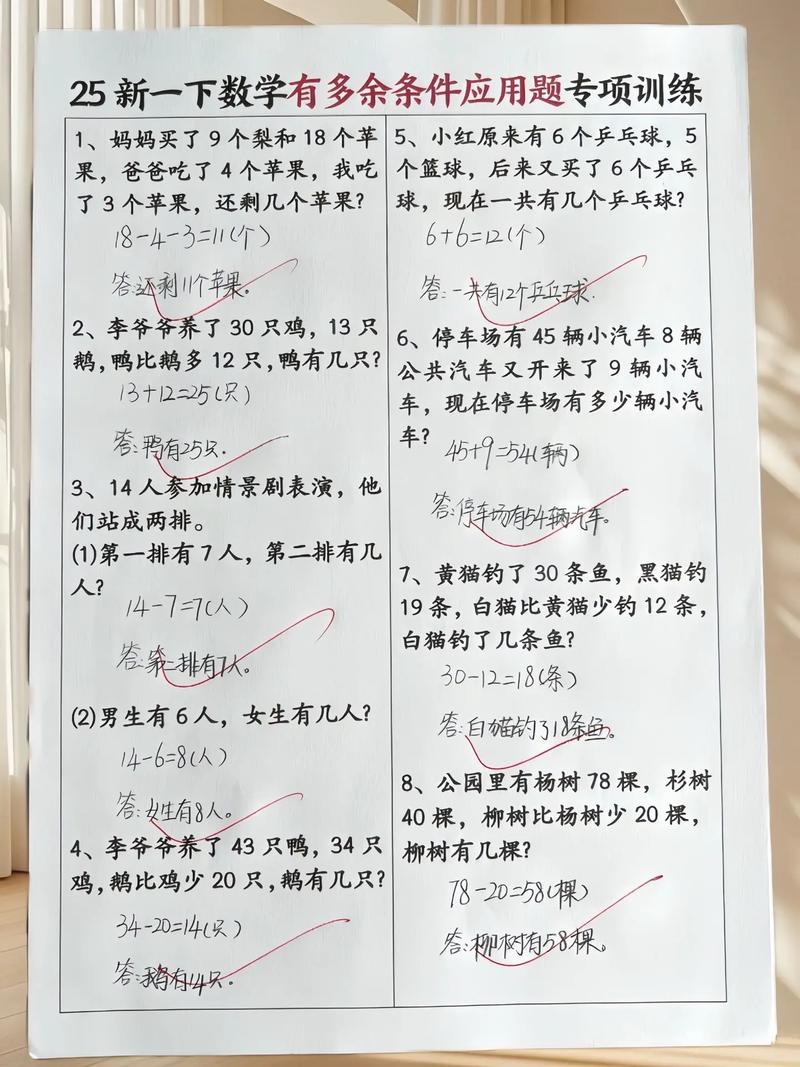 25新一下数学有多余条件应用题专项训练
1、妈妈买了9个梨和18个苹
果，爸爸吃了4个苹果，我吃
了3个苹果，还剩几个苹果？
18-4-3=11(个)
答:还剩11个苹果。
2、李爷爷养了30只鸡，13只
鹅，鸭比鹅多12只，鸭有几只？
13+12=25(只)
答:鸭有25只.
3、14人参加情景剧表演，他
们站成两排。
(1)第一排有7人，第二排有几
人？
14-7=7(人)
答:第二排有7人。
(2)男生有6人，女生有几人？
14-6=8(人)
答:女生有8人。
4、李爷爷养了43只鸭，34只
鸡，鹅比鸡少20只，鹅有几只？
34-20=14(只)
答:鹅有14只.
5、小红原来有6个乒乓球，5
个篮球，后来又买了6个乒乓
球，现在一共有几个乒乓球？
6+6=12(个)
答:一共有12个乒乓球.
6、停车场有45辆小汽车8辆
公共汽车又开来了9辆小汽
车，现在停车场有多少辆小汽
车？
45+9=54(辆)
答:停车场有54辆汽车。
7、黄猫钓了30条鱼，黑猫钓
19条，白猫比黄猫少钓12条，
白猫钓了几条鱼？
30-12=18(条)
答:白猫钓了18条鱼。
8、公园里有杨树78棵，杉树
40棵，柳树比杨树少20棵，
柳树有几棵？
78-20=58(棵)
答:柳树有58棵。